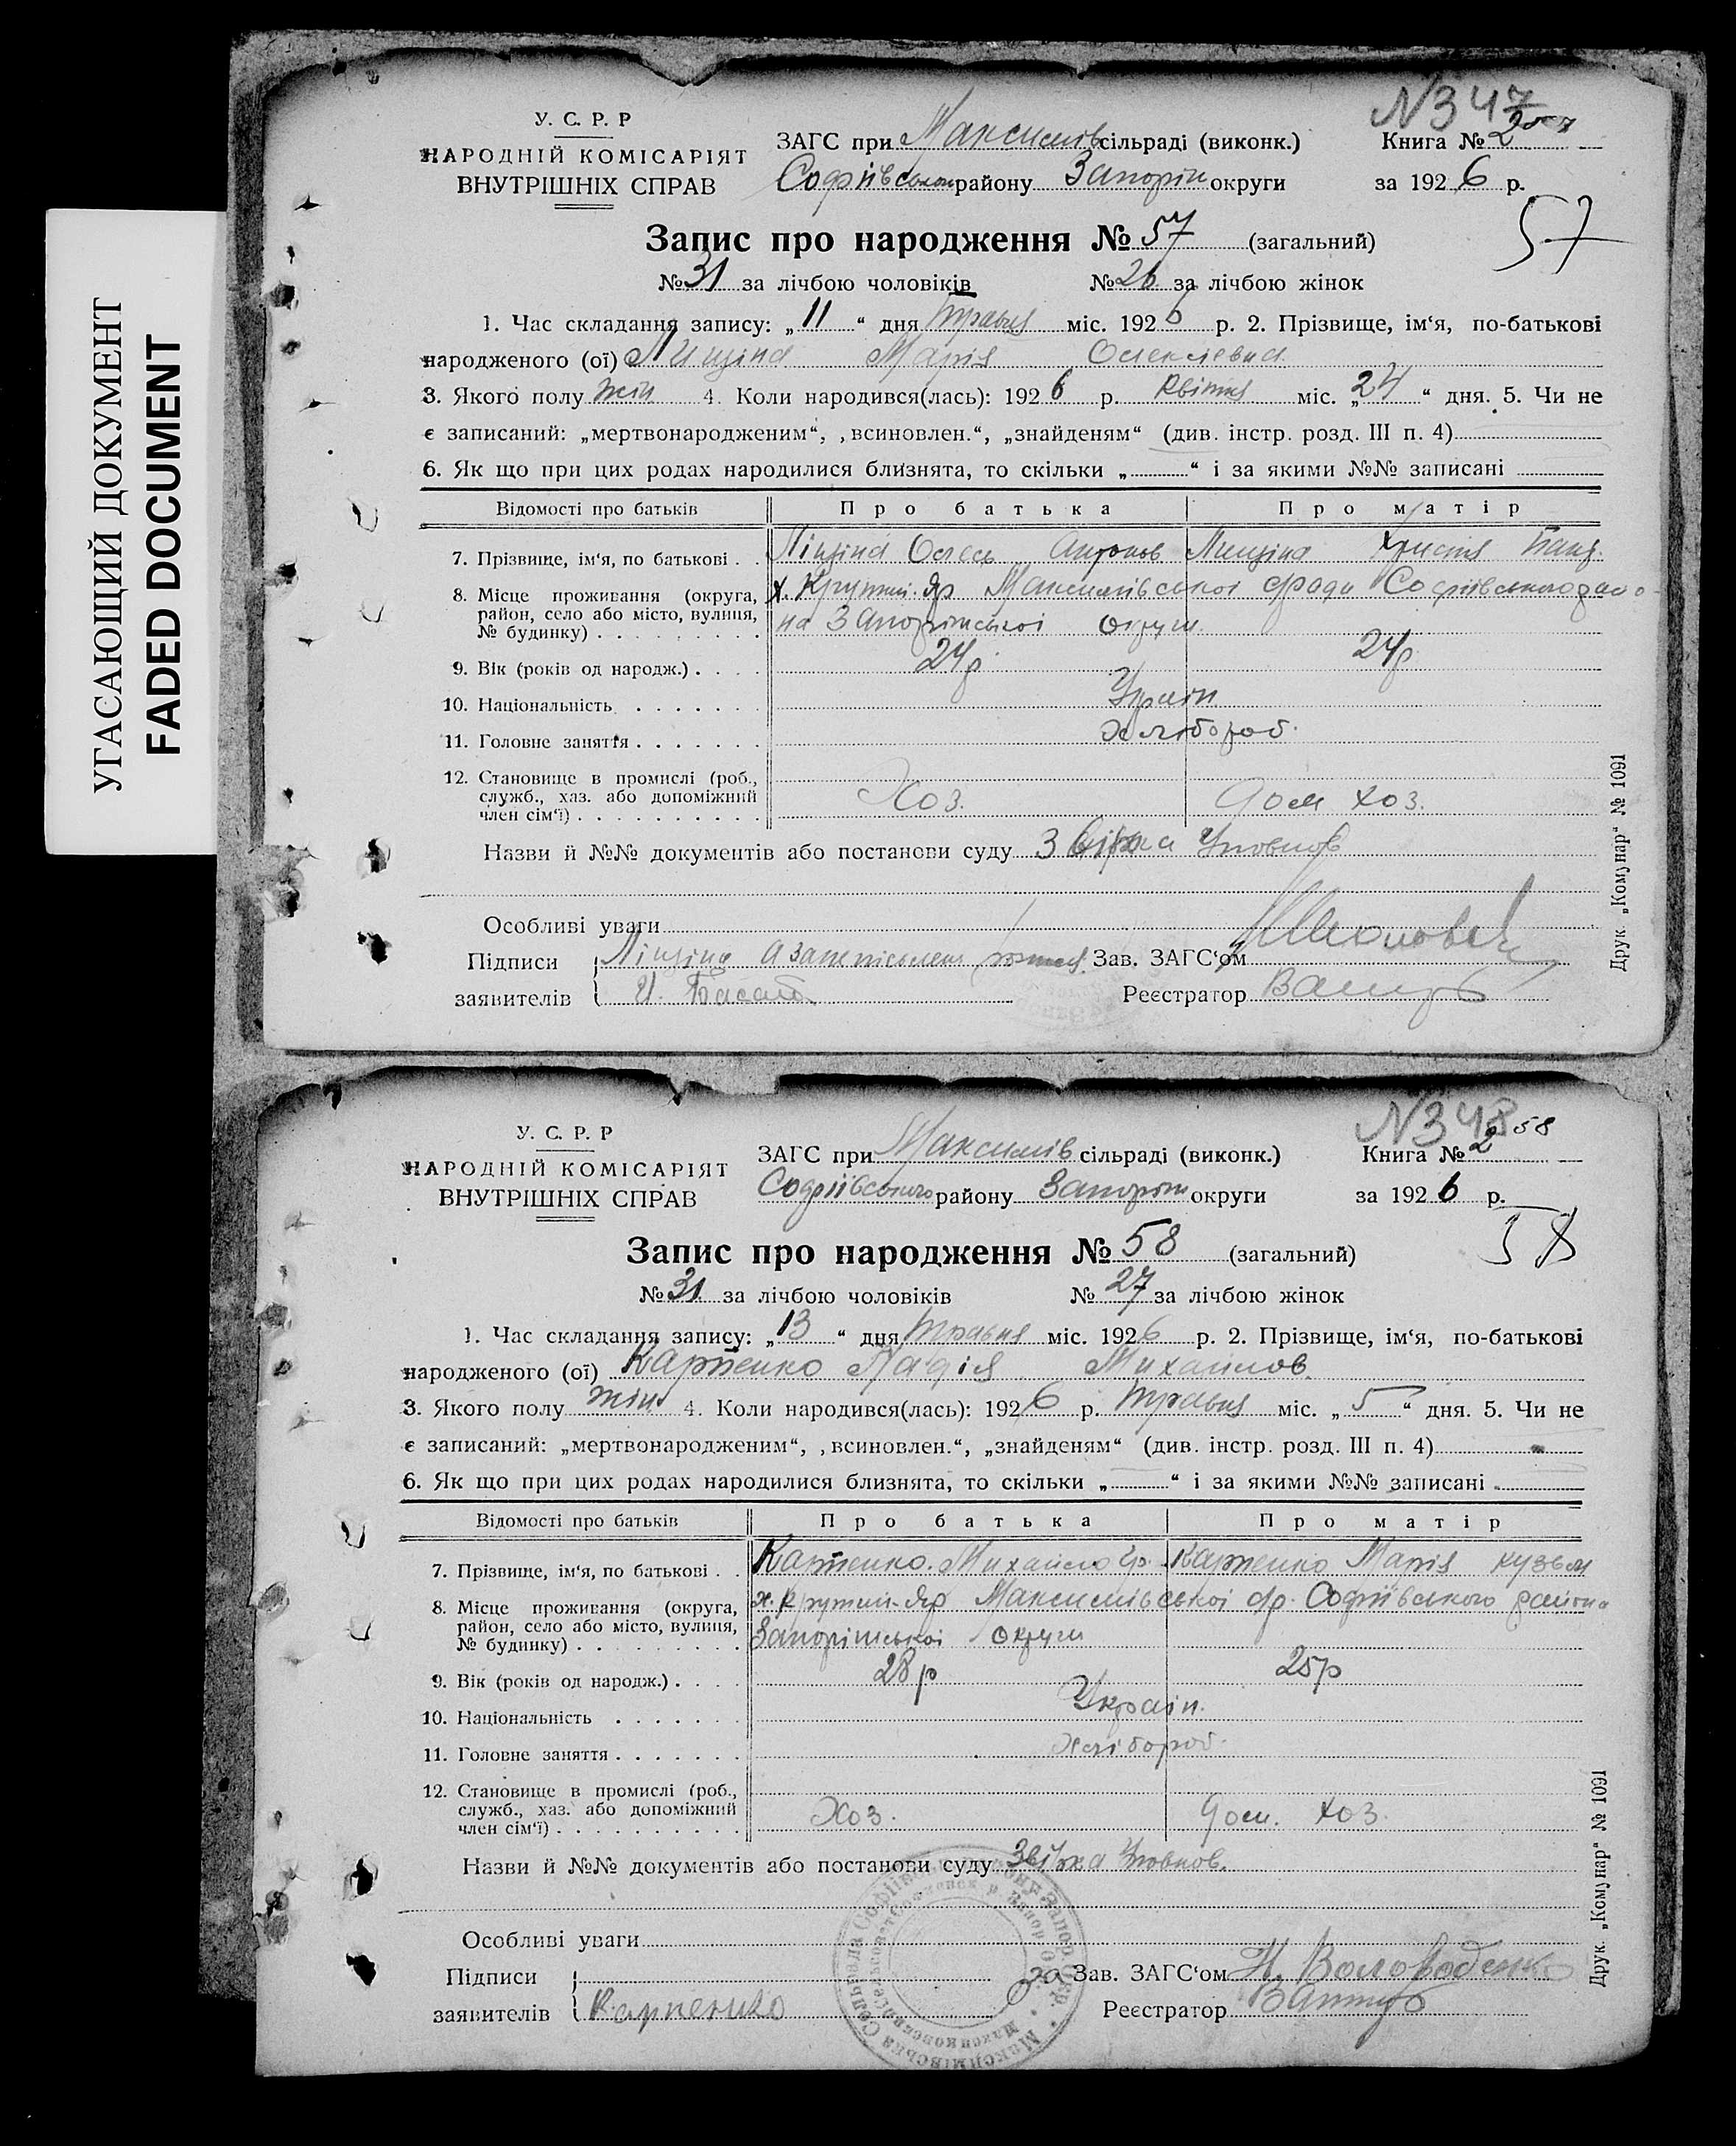 УГАСАЮЩИЙ ДОКУМЕНТ
FADED DOCUMENT
№347
У. С. Р. Р
НАРОДНІЙ КОМІСАРІЯТ
ВНУТРІШНІХ СПРАВ
ЗАГС при Максимів сільраді (виконк.)
Книга № 2
Софіївськом району Запоріж округи
за 1926 р.
57
Запис про народження № 57 (загальний)
№ 31 за лічбою чоловіків № 26 за лічбою жінок
1. Час складання запису: „11“ дня травня міс. 1926 р. 2. Прізвище, ім‘я, по-батькові
народженого (ої) Лицина Марія Олексіевна
3. Якого полу жін 4. Коли народився(лась): 1926 р. квітня міс. „24“ дня. 5. Чи не
є записаний: „мертвонародженим“, „всиновлен.“, „знайденям“ (див. інстр. розд. III п. 4)
6. Як що при цих родах народилися близнята, то скільки „ “ і за якими №№ записані
Відомості про батьків Про батька Про матір
7. Прізвище, ім‘я, по батькові . . Ліцина Олесь Антонов Лицина Христя
8. Місце проживання (округа, х. Крутий-Яр Максимівської Софіївського райо
район, село або місто, вулиця, на Запоріжської округи
№ будинку)
9. Вік (років од народж.) 24р 24р
10. Національність Україн
11. Головне заняття Хлібороб.
12. Становище в промислі (роб.,
служб., хаз. або допоміжний Хоз. дом хоз.
член сім‘ї)
Назви й №№ документів або постанови суду Звістка Уповнов
Особливі уваги
Підписи Ліцина Зав. ЗАГС‘ом
заявителів И. Реєстратор
Друк. „Комунар“ № 1091
№348
58
У. С. Р. Р
НАРОДНІЙ КОМІСАРІЯТ
ВНУТРІШНІХ СПРАВ
ЗАГС при Максимів сільраді (виконк.)
Книга № 2
Софіївського району Запоріж округи
за 1926 р.
58
Запис про народження № 58 (загальний)
№ 31 за лічбою чоловіків № 27 за лічбою жінок
1. Час складання запису: „13“ дня травня міс. 1926 р. 2. Прізвище, ім‘я, по-батькові
народженого (ої) Карпенко Надія Михайлов.
3. Якого полу жін 4. Коли народився(лась): 1926 р. травня міс. „5“ дня. 5. Чи не
є записаний: „мертвонародженим“, „всиновлен.“, „знайденям“ (див. інстр. розд. III п. 4)
6. Як що при цих родах народилися близнята, то скільки „ “ і за якими №№ записані
Відомості про батьків Про батька Про матір
7. Прізвище, ім‘я, по батькові . . Карпенко Михайло Гр. Карпенко Марія Кузьм
8. Місце проживання (округа, х. Крутий-Яр Максимівської Софіївського района
район, село або місто, вулиця, Запоріжської округи
№ будинку)
9. Вік (років од народж.) 28р 25р
10. Національність Україн.
11. Головне заняття Хлібороб.
12. Становище в промислі (роб.,
служб., хаз. або допоміжний Хоз. дом. хоз.
член сім‘ї)
Назви й №№ документів або постанови суду Звістка Уповнов.
Особливі уваги
Підписи За Зав. ЗАГС‘ом Н. Володенко
заявителів Карпенко Реєстратор
Друк. „Комунар“ № 1091